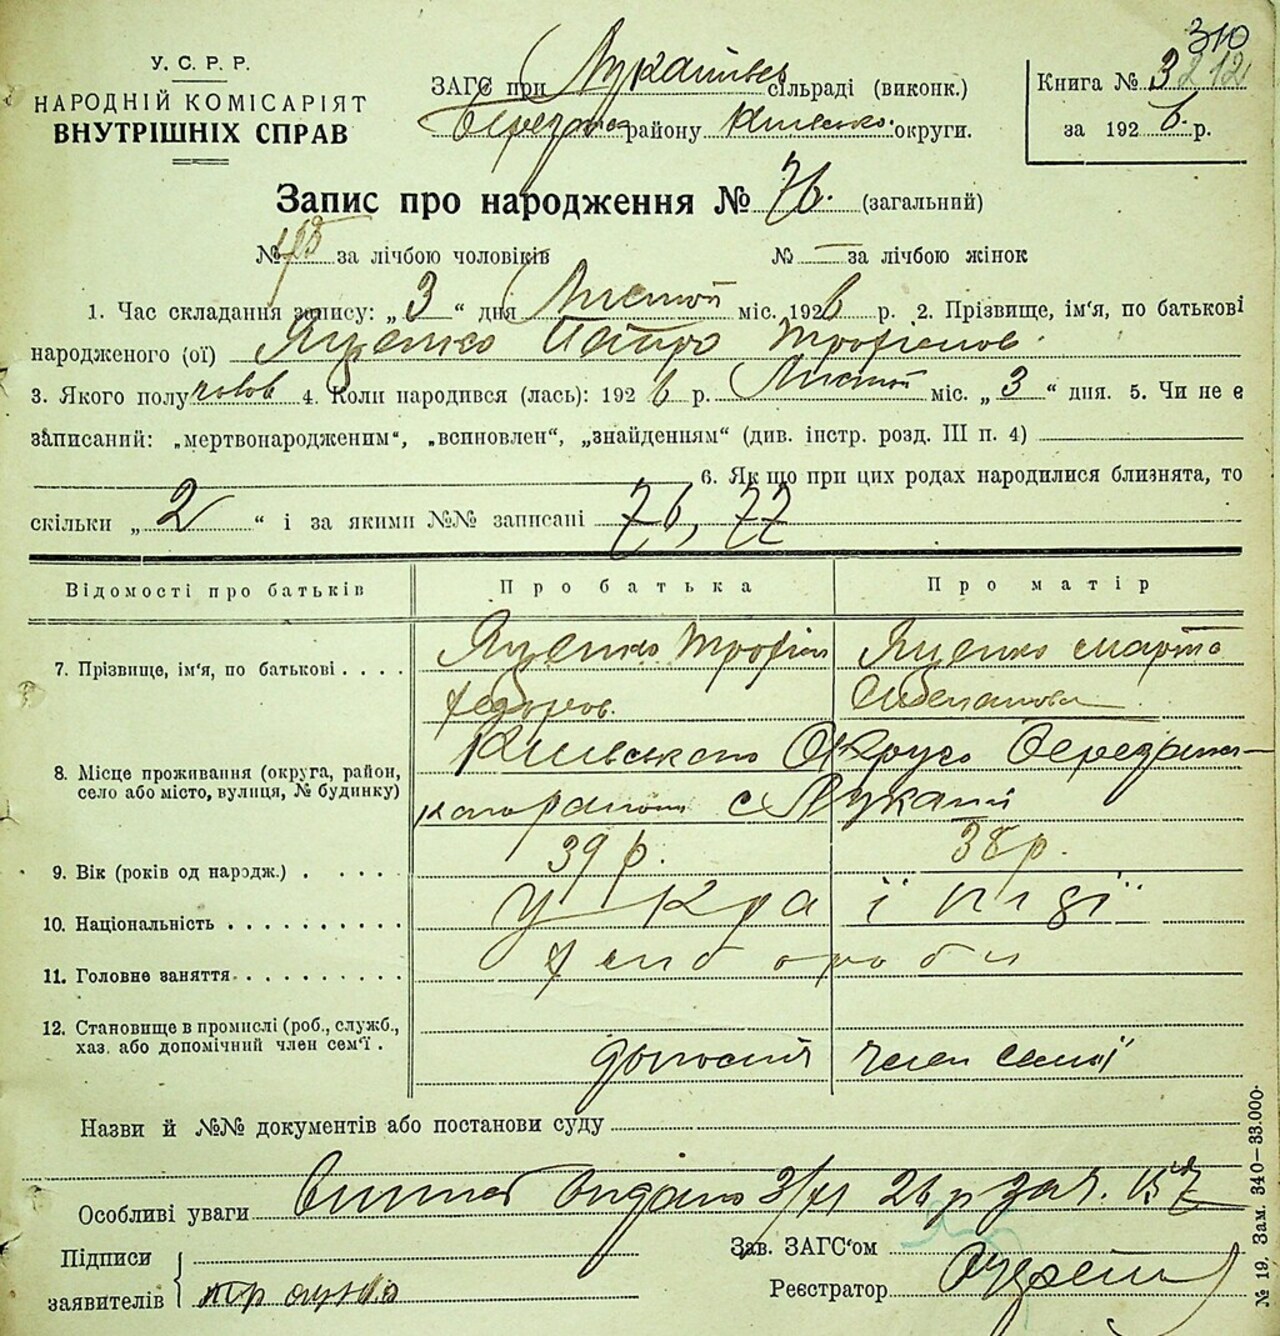 310
У. С. Р. Р.
НАРОДНІЙ КОМІСАРІЯТ
ВНУТРІШНІХ СПРАВ
ЗАГС при Лукашівсь сільраді (виконк.)
району Київсько. округи.
Книга № 3 212
за 1926 р.
Запис про народження № 76. (загальний)
№ за лічбою чоловіків
№ — за лічбою жінок
1. Час складання запису: „ 3 “ дня Листоп міс. 1926 р. 2. Прізвище, ім'я, по батькові
народженого (ої) Яценко Петро Трофімов.
3. Якого полу чолов 4. Коли народився (лась): 1926 р. Листоп міс. „ 3 “ дня. 5. Чи не є
записаний: „мертвонародженим“, „вспновлен“, „знайденням“ (див. інстр. розд. III п. 4)
6. Як що при цих родах народилися близнята, то
скільки „ 2 “ і за якими №№ записані 76, 77
Відомості про батьків Про батька Про матір
7. Прізвище, ім'я, по батькові . . . . Яценко Трофім Яценко Марта
Федоров. Степанова
8. Місце проживання (округа, район, село або місто, вулиця, № будинку) Київського Округо Березансь-
кого району с Лукаші
9. Вік (років од народж.) . . . . . 39 р. 38 р.
10. Національність . . . . . . . . . . Українці
11. Головне заняття . . . . . . . . . . хлібороби
12. Становище в промислі (роб., служб., хаз. або допомічний член сем'ї .
допоміж член семьї
Назви й №№ документів або постанови суду
Особливі уваги Виписі Видано 3/XI 26 р за ч. 157
Підписи
заявителів
Зав. ЗАГС'ом
Реєстратор
№ 19. Зам. 340—33.000.